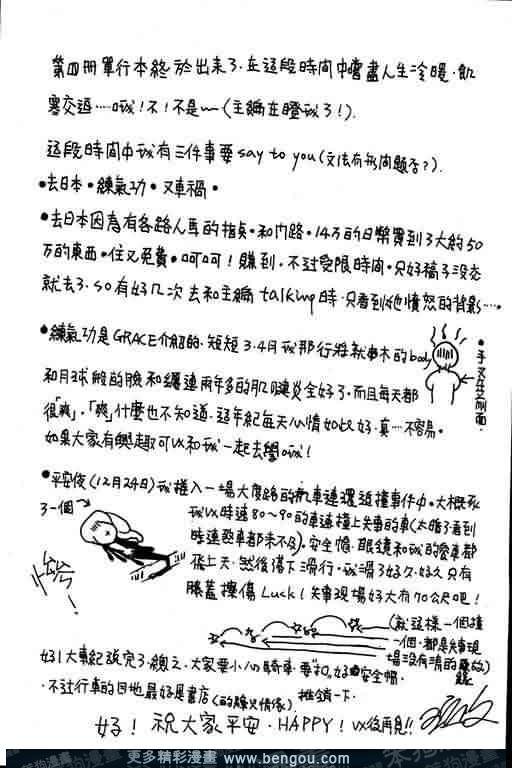 第四冊單行本終於出來了．在這段時間中嚐盡人生冷暖．飢
寒交迫……哦！不！不是～(主編在瞪我了！).
這段時間中我有三件事要say to you(文法有無問題否？).
•去日本•練氣功•又車禍•
•去日本因為有各路人馬的指點•和門路•14万的日幣買到了大約50
万的東西•住又免費•呵呵！賺到．不过受限時間•只好稿子沒交
就去了．so有好几次去和主編talking時．只看到她憤怒的背影…．
•練氣功是GRACE介紹的．短短3.4月我那行將就木的body
•手叉在前面．
和月球般的臉和纏連兩年多的肌腱炎全好了．而且每天都
很「爽」．「爽」什麼也不知道．這年紀每天心情如此好．真…不容易。
如果大家有興趣可以和我一起去學哦！
•平安夜(12月24日)我撞入一場大度路的汽車連環追撞事件中．大概死
了一個
我以時速80～90的車速撞上失事的車(太暗了看到
時連煞車都來不及)．安全帽．眼鏡和我的愛車都
飛上天．然後落下滑行．我滑了好久．好久只有
膝蓋擦傷Luck！失事現場好大有70公尺吧！
(就這樣一個撞
一個．都是失事現
場沒有清的緣故)
好！大事紀説完了．總之．大家要小心騎車．要"扣"好安全帽．
．不过行車的目地最好是書店(的賺人情係)推銷一下．
好！祝大家平安．HAPPY！以後再見！！
更多精彩漫畫 www.bengou.com